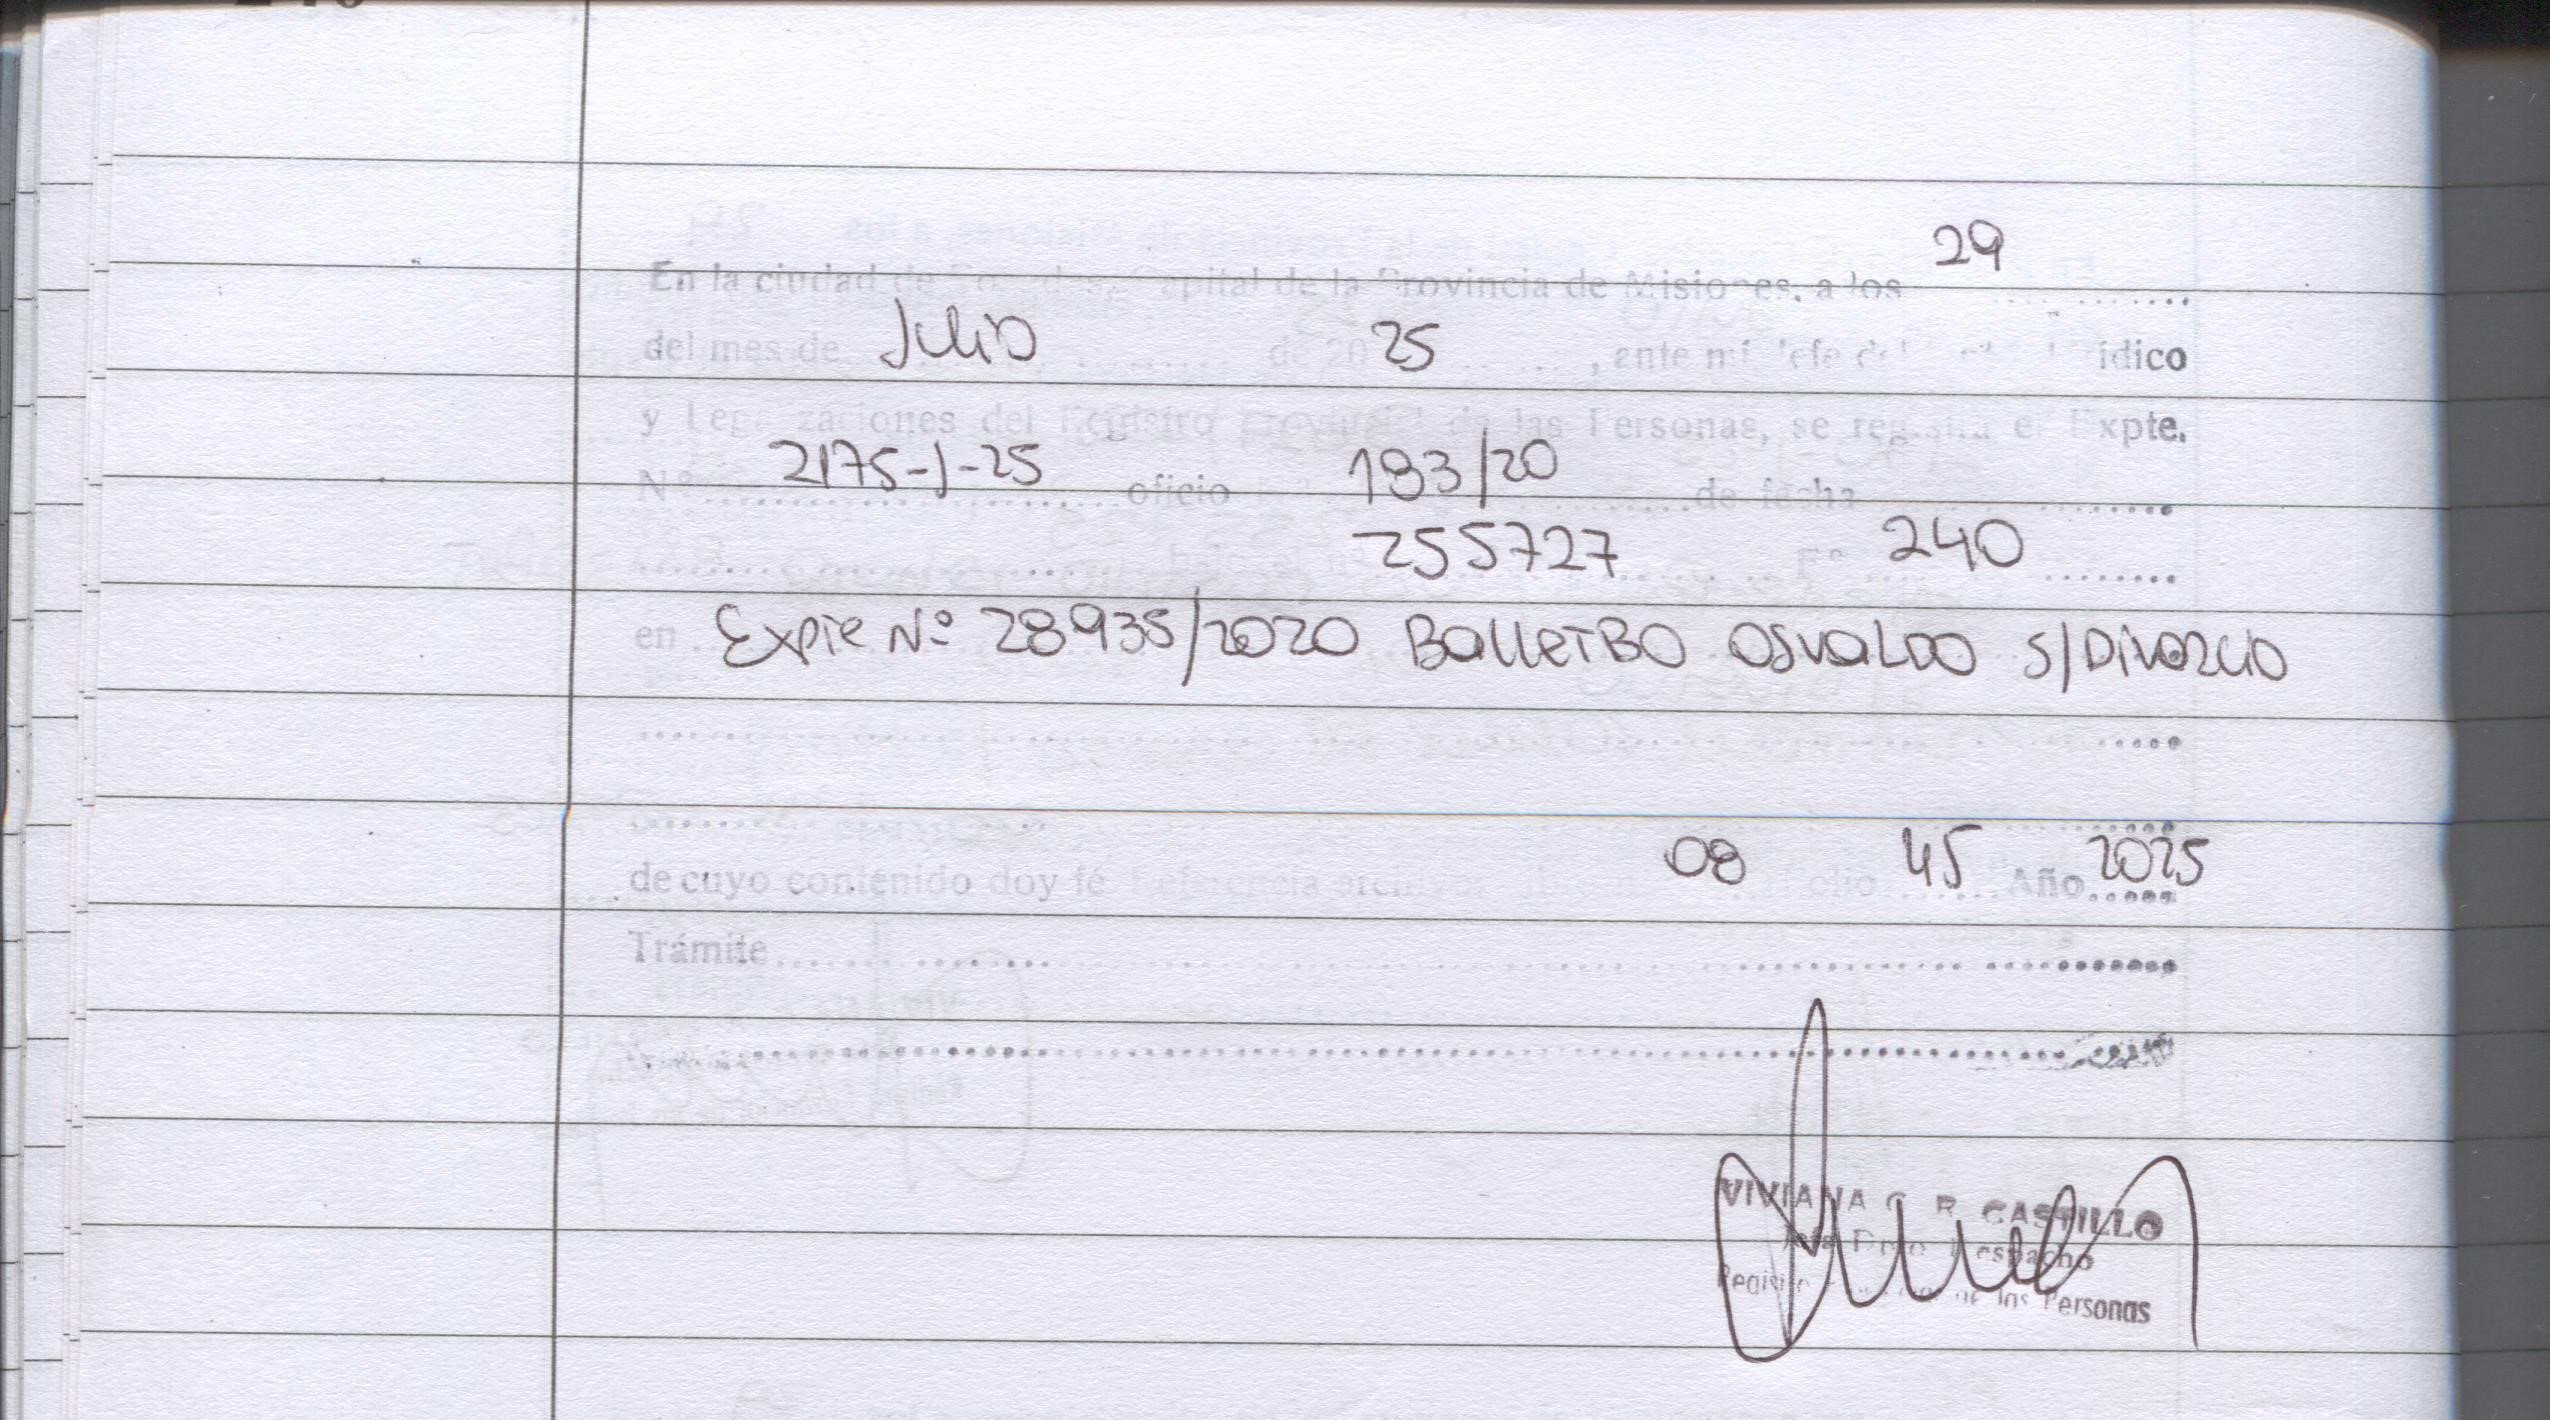 29
En la ciudad de Capital de la Provincia de Misiones, a los
del mes de Julio de 20 25, ante mí Jefe
y Legalizaciones del Registro Provincial de las Personas, se registra el Expte.
N° 2175-J-25 oficio 193/20 de fecha
255727 F° 240
en Expte N° 28935/2020 BalletBO OSvaLDO S/Divorcio
de cuyo contenido doy fé Referencia 08 Folio 45 Año 2025
Trámite
VIVIANA C. R. CASTILLO
Jefa Dpto Despacho
de las Personas